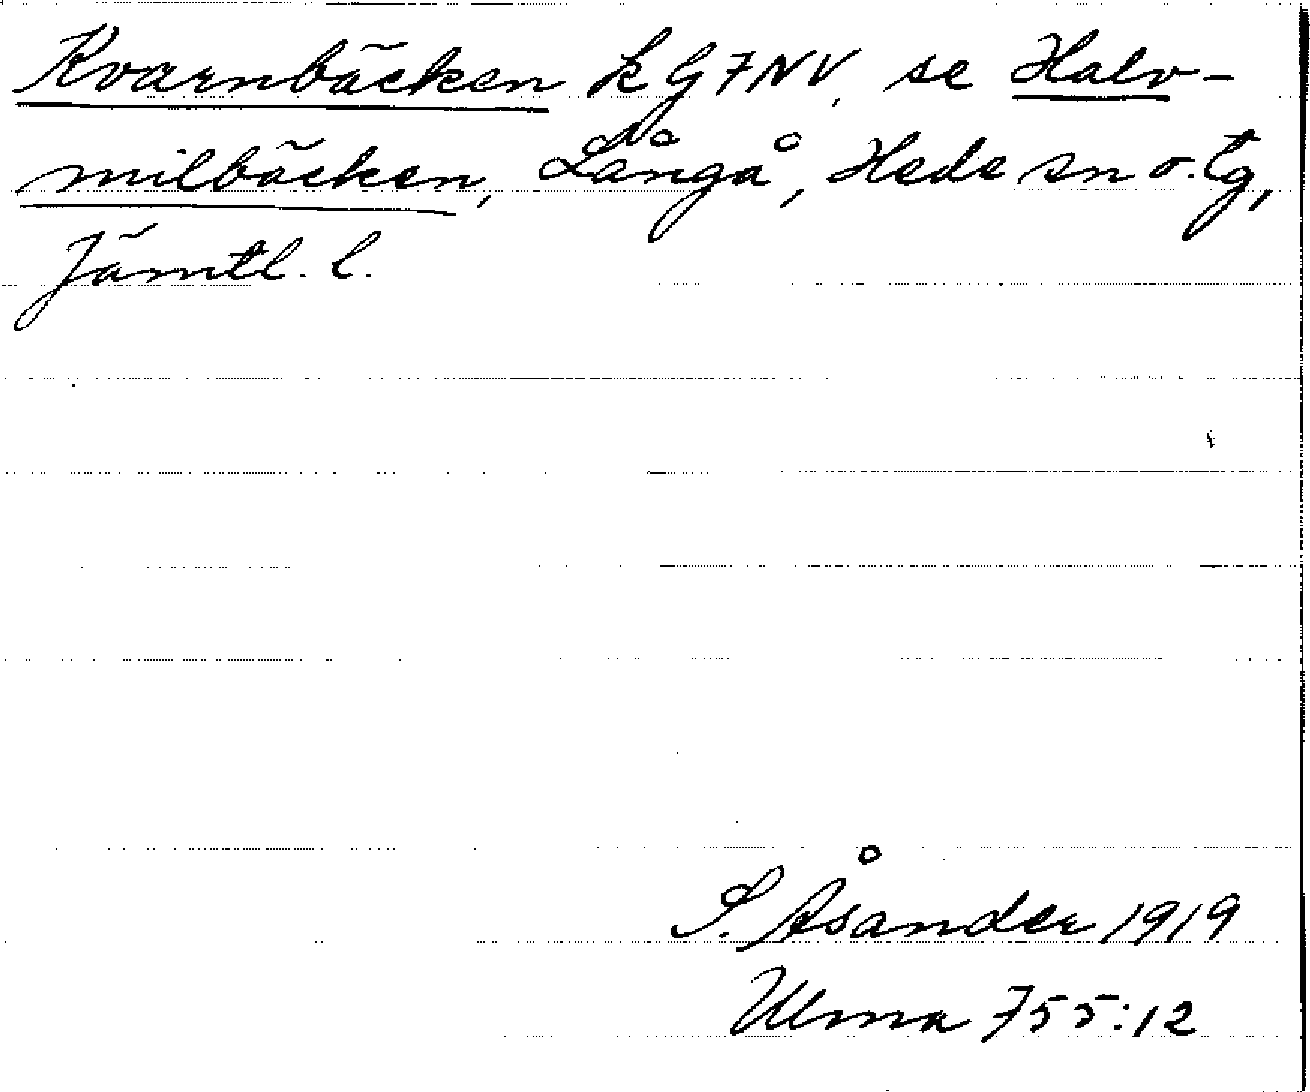 Kvarnbäcken k G7NV, se Halv-
milbäcken, Långå, Hede sn o. tg,
Jämtl. l.
S. Åsander 1919
Ulma 755:12